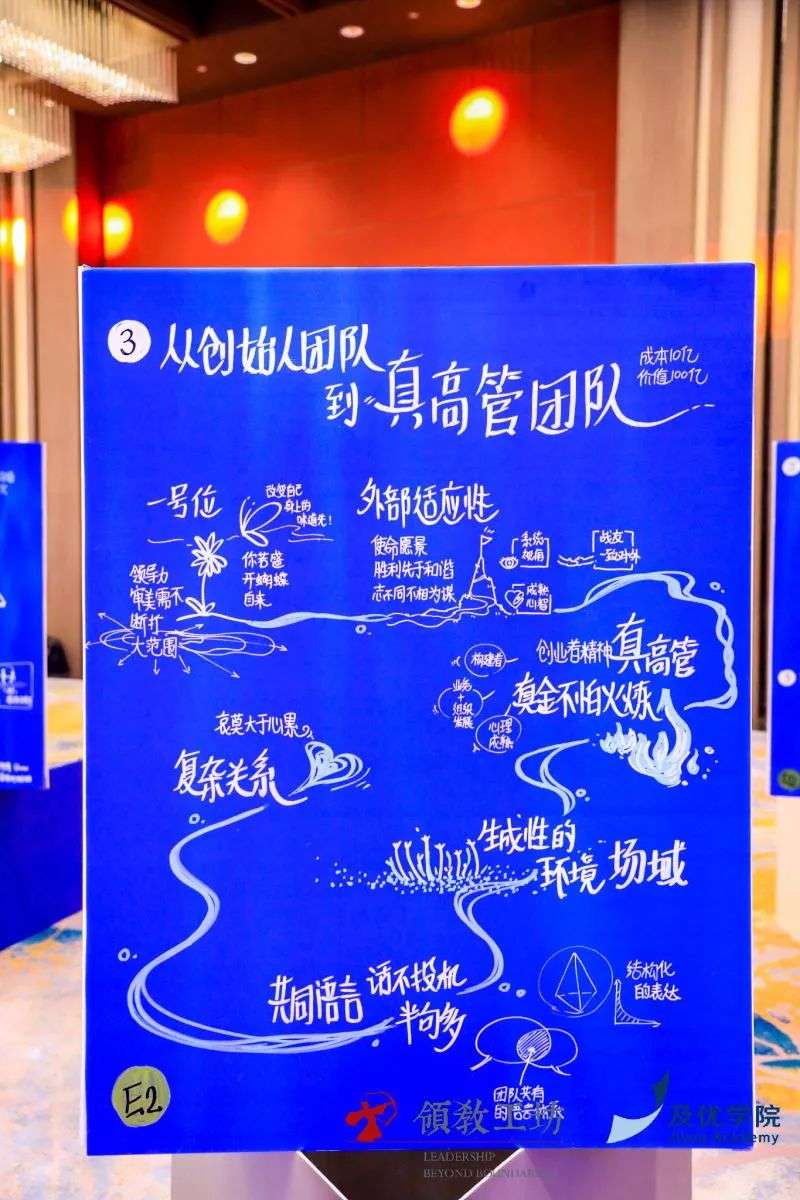 3
从创始人团队
到"真高管团队
成本10亿
价值100亿
一号位
改变自己
身上的
味道先！
领导力
审美需不
断打
大范围
你若盛
开蝴蝶
自来
外部适应性
使命愿景
胜利先于和谐
志不同不相为谋
系统
视角
战友
一致对外
成熟
心智
创业者精神
真高管
真金不怕火炼
构建者
业务
+
组织
发展
心理
成熟
哀莫大于心累
复杂关系
生成性的
环境场域
共同语言
话不投机
半句多
结构化
的表达
团队共有
的语言
E2
領教工坊
LEADERSHIP
BEYOND BOUNDARIES
及优学院
Academy